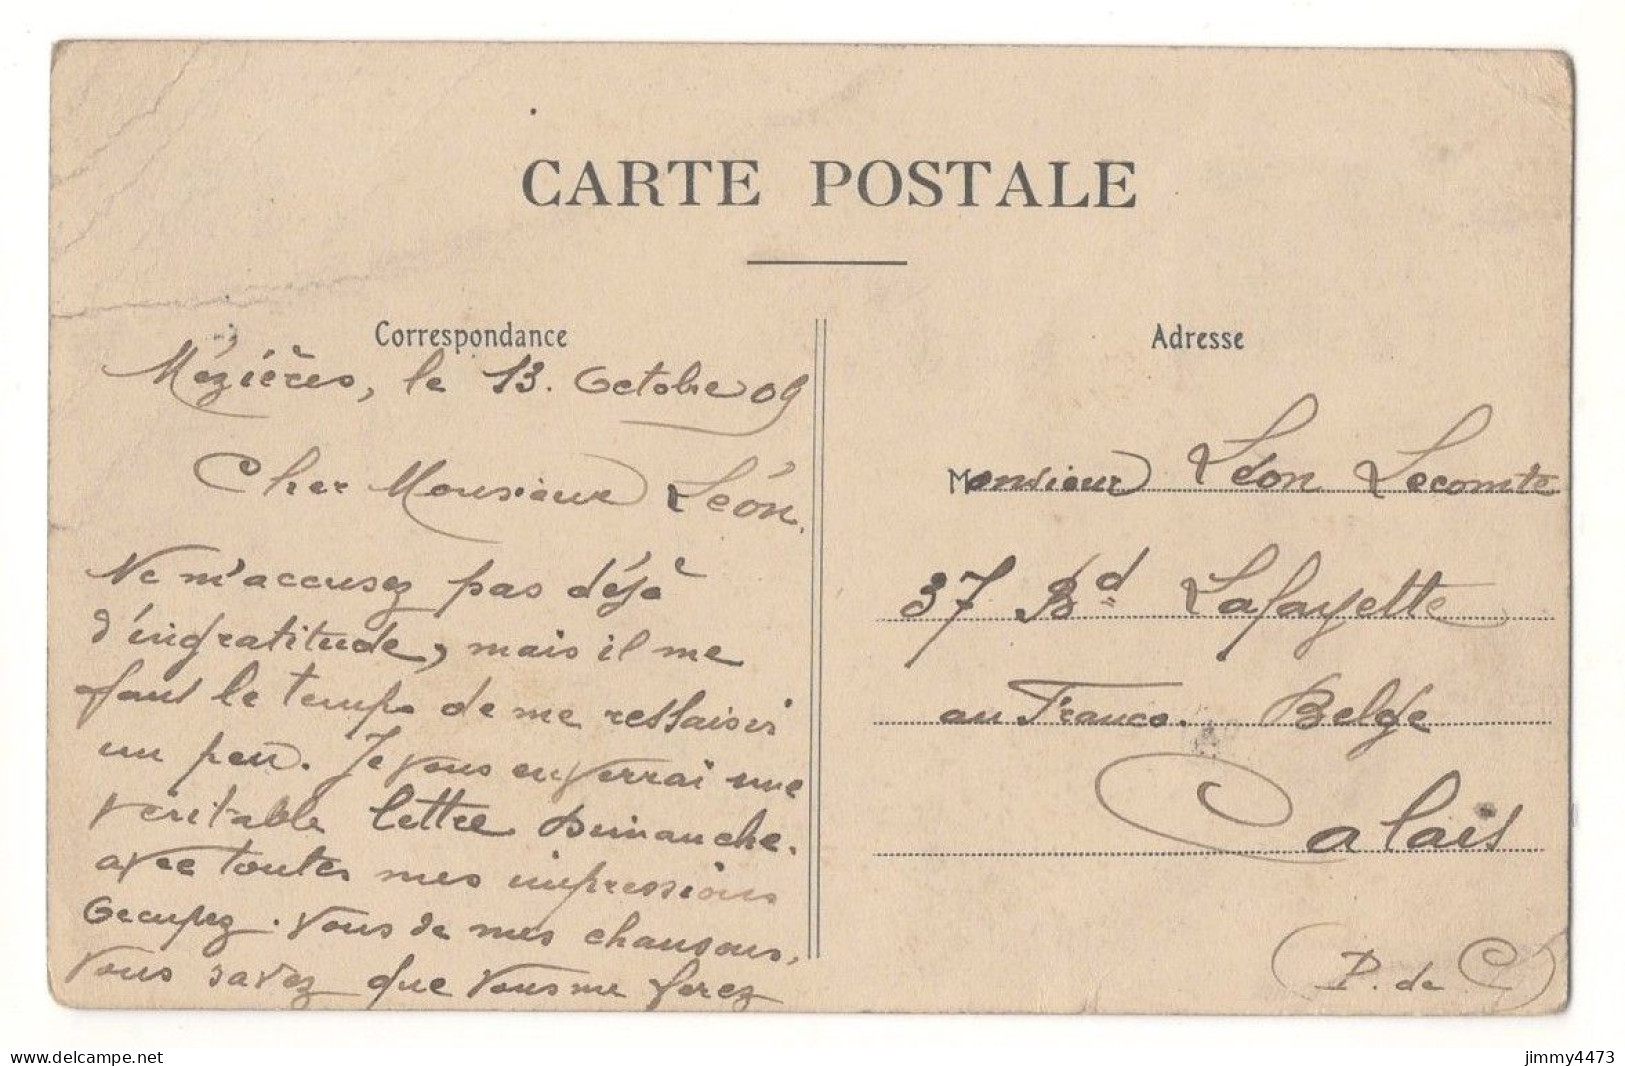 CARTE POSTALE
Correspondance
Mézières, le 13. Octobre 09
Cher Monsieur Léon.
Ne m'accusez pas déjà
d'ingratitude, mais il me
faut le temps de me ressaisir
un peu. Je vous enverrai une
véritable lettre Dimanche.
avec toutes mes impressions
Occupez-vous de mes chansons,
vous savez que vous me ferez
Adresse
Monsieur Léon Lecomte
37 Bd Lafayette
au Franco. Belge
Calais
(P. de C)
delcampe.net
jimmy4473